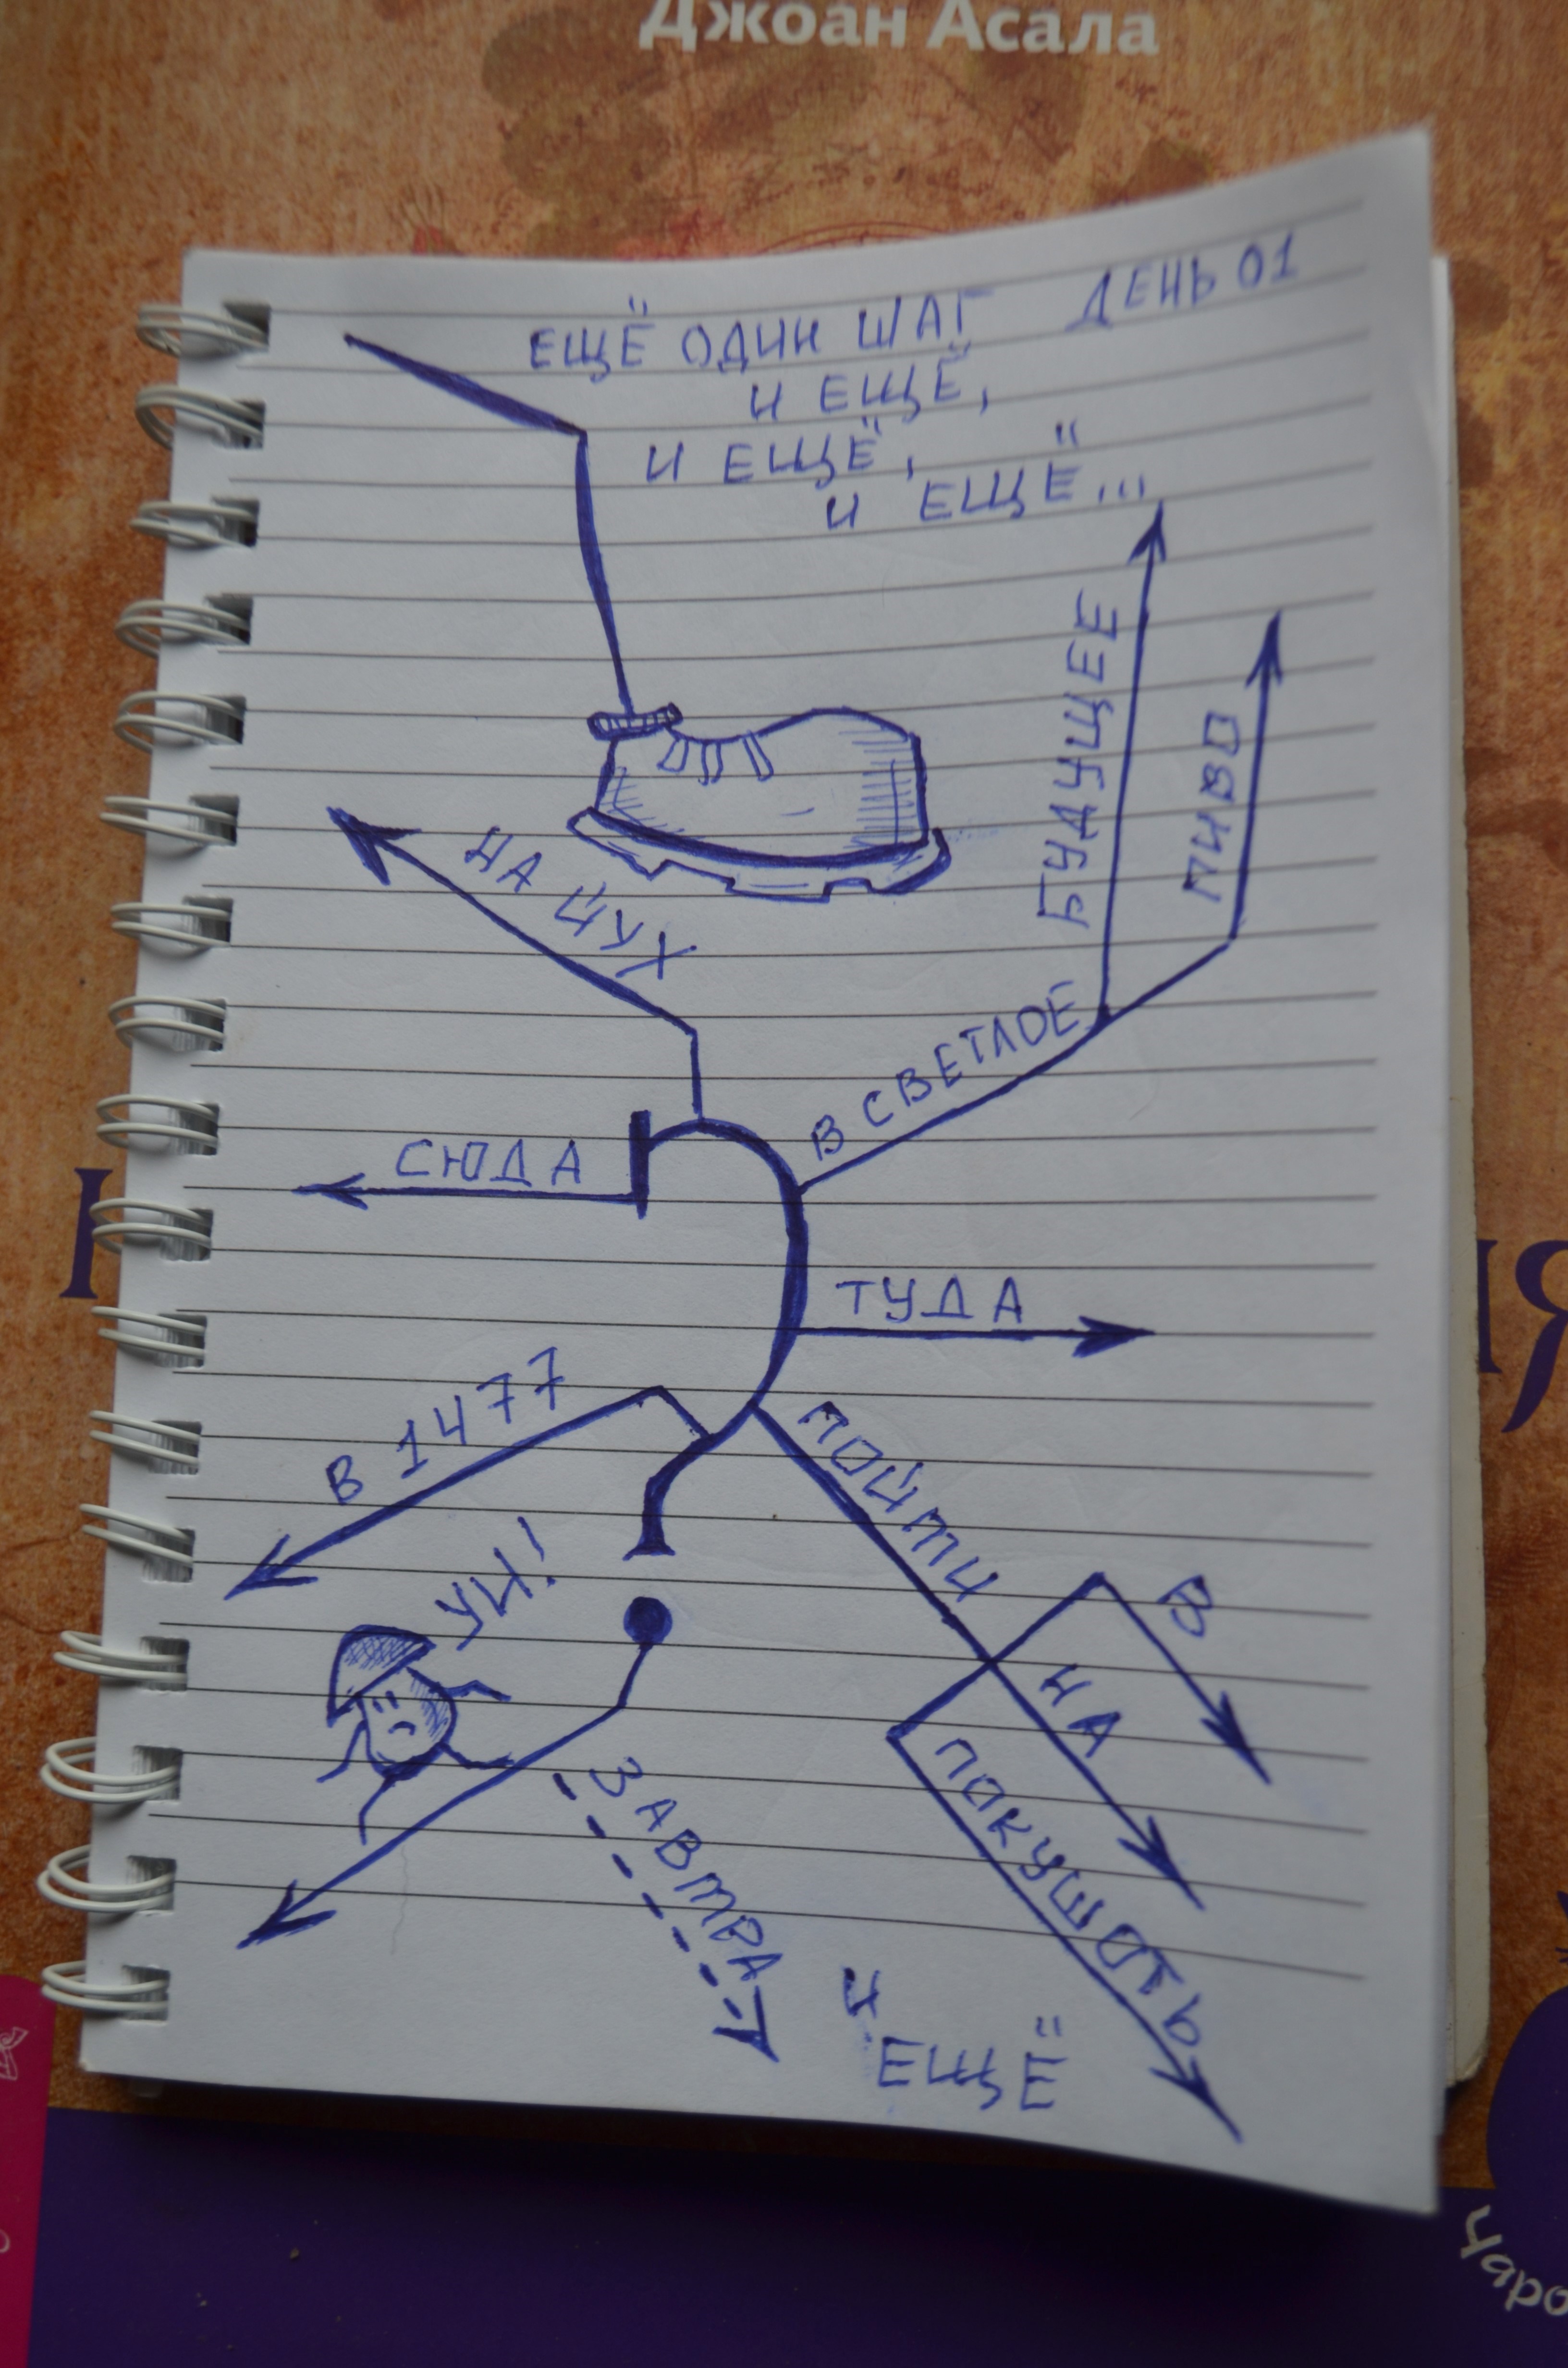 Джоан Асала
ДЕНЬ 01
ЕЩЁ ОДИН ШАГ
И ЕЩЁ,
И ЕЩЁ,
И ЕЩЁ...
БУДУЩЕЕ
ПИВО
НА ЙУХ
В СВЕТЛОЕ
СЮДА
ТУДА
В 1477
ПОЙТИ
В
НА
ПОКУШОТЬ
УИ!
ЗАВТРА
И
ЕЩЁ
Чаро